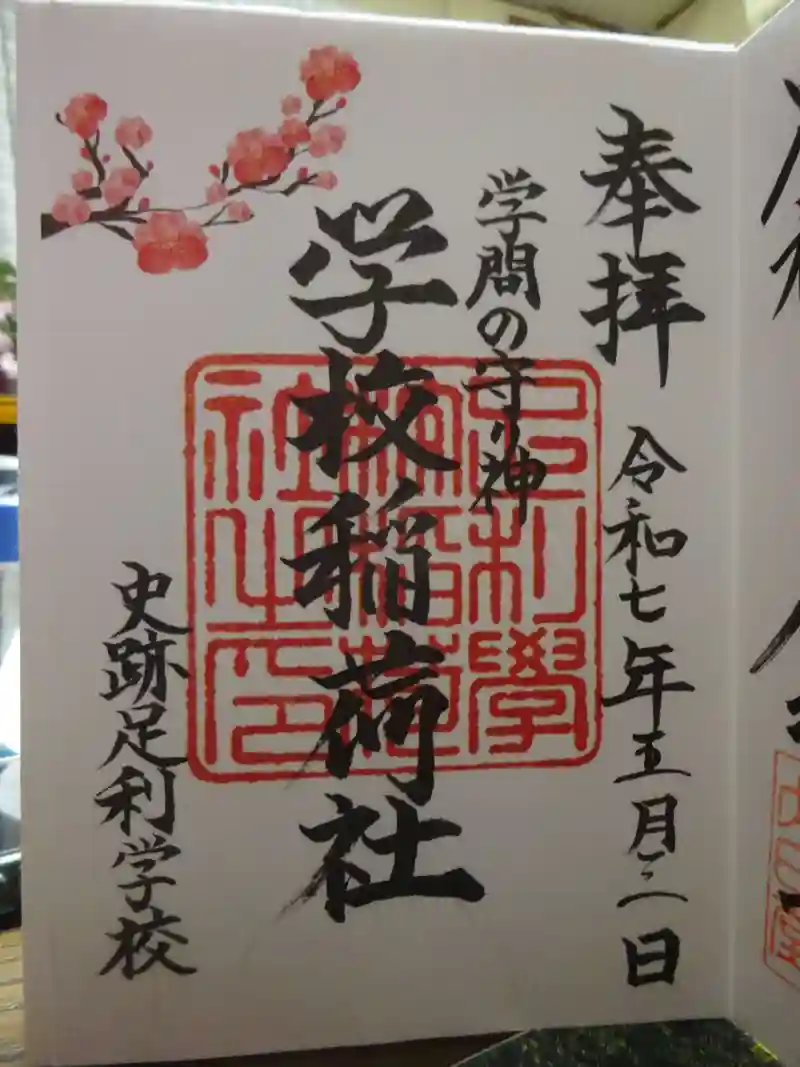 奉拝 令和七年五月三日
学問の守り神
学校稲荷社
足利學
校稲荷
社之印
史跡足利学校